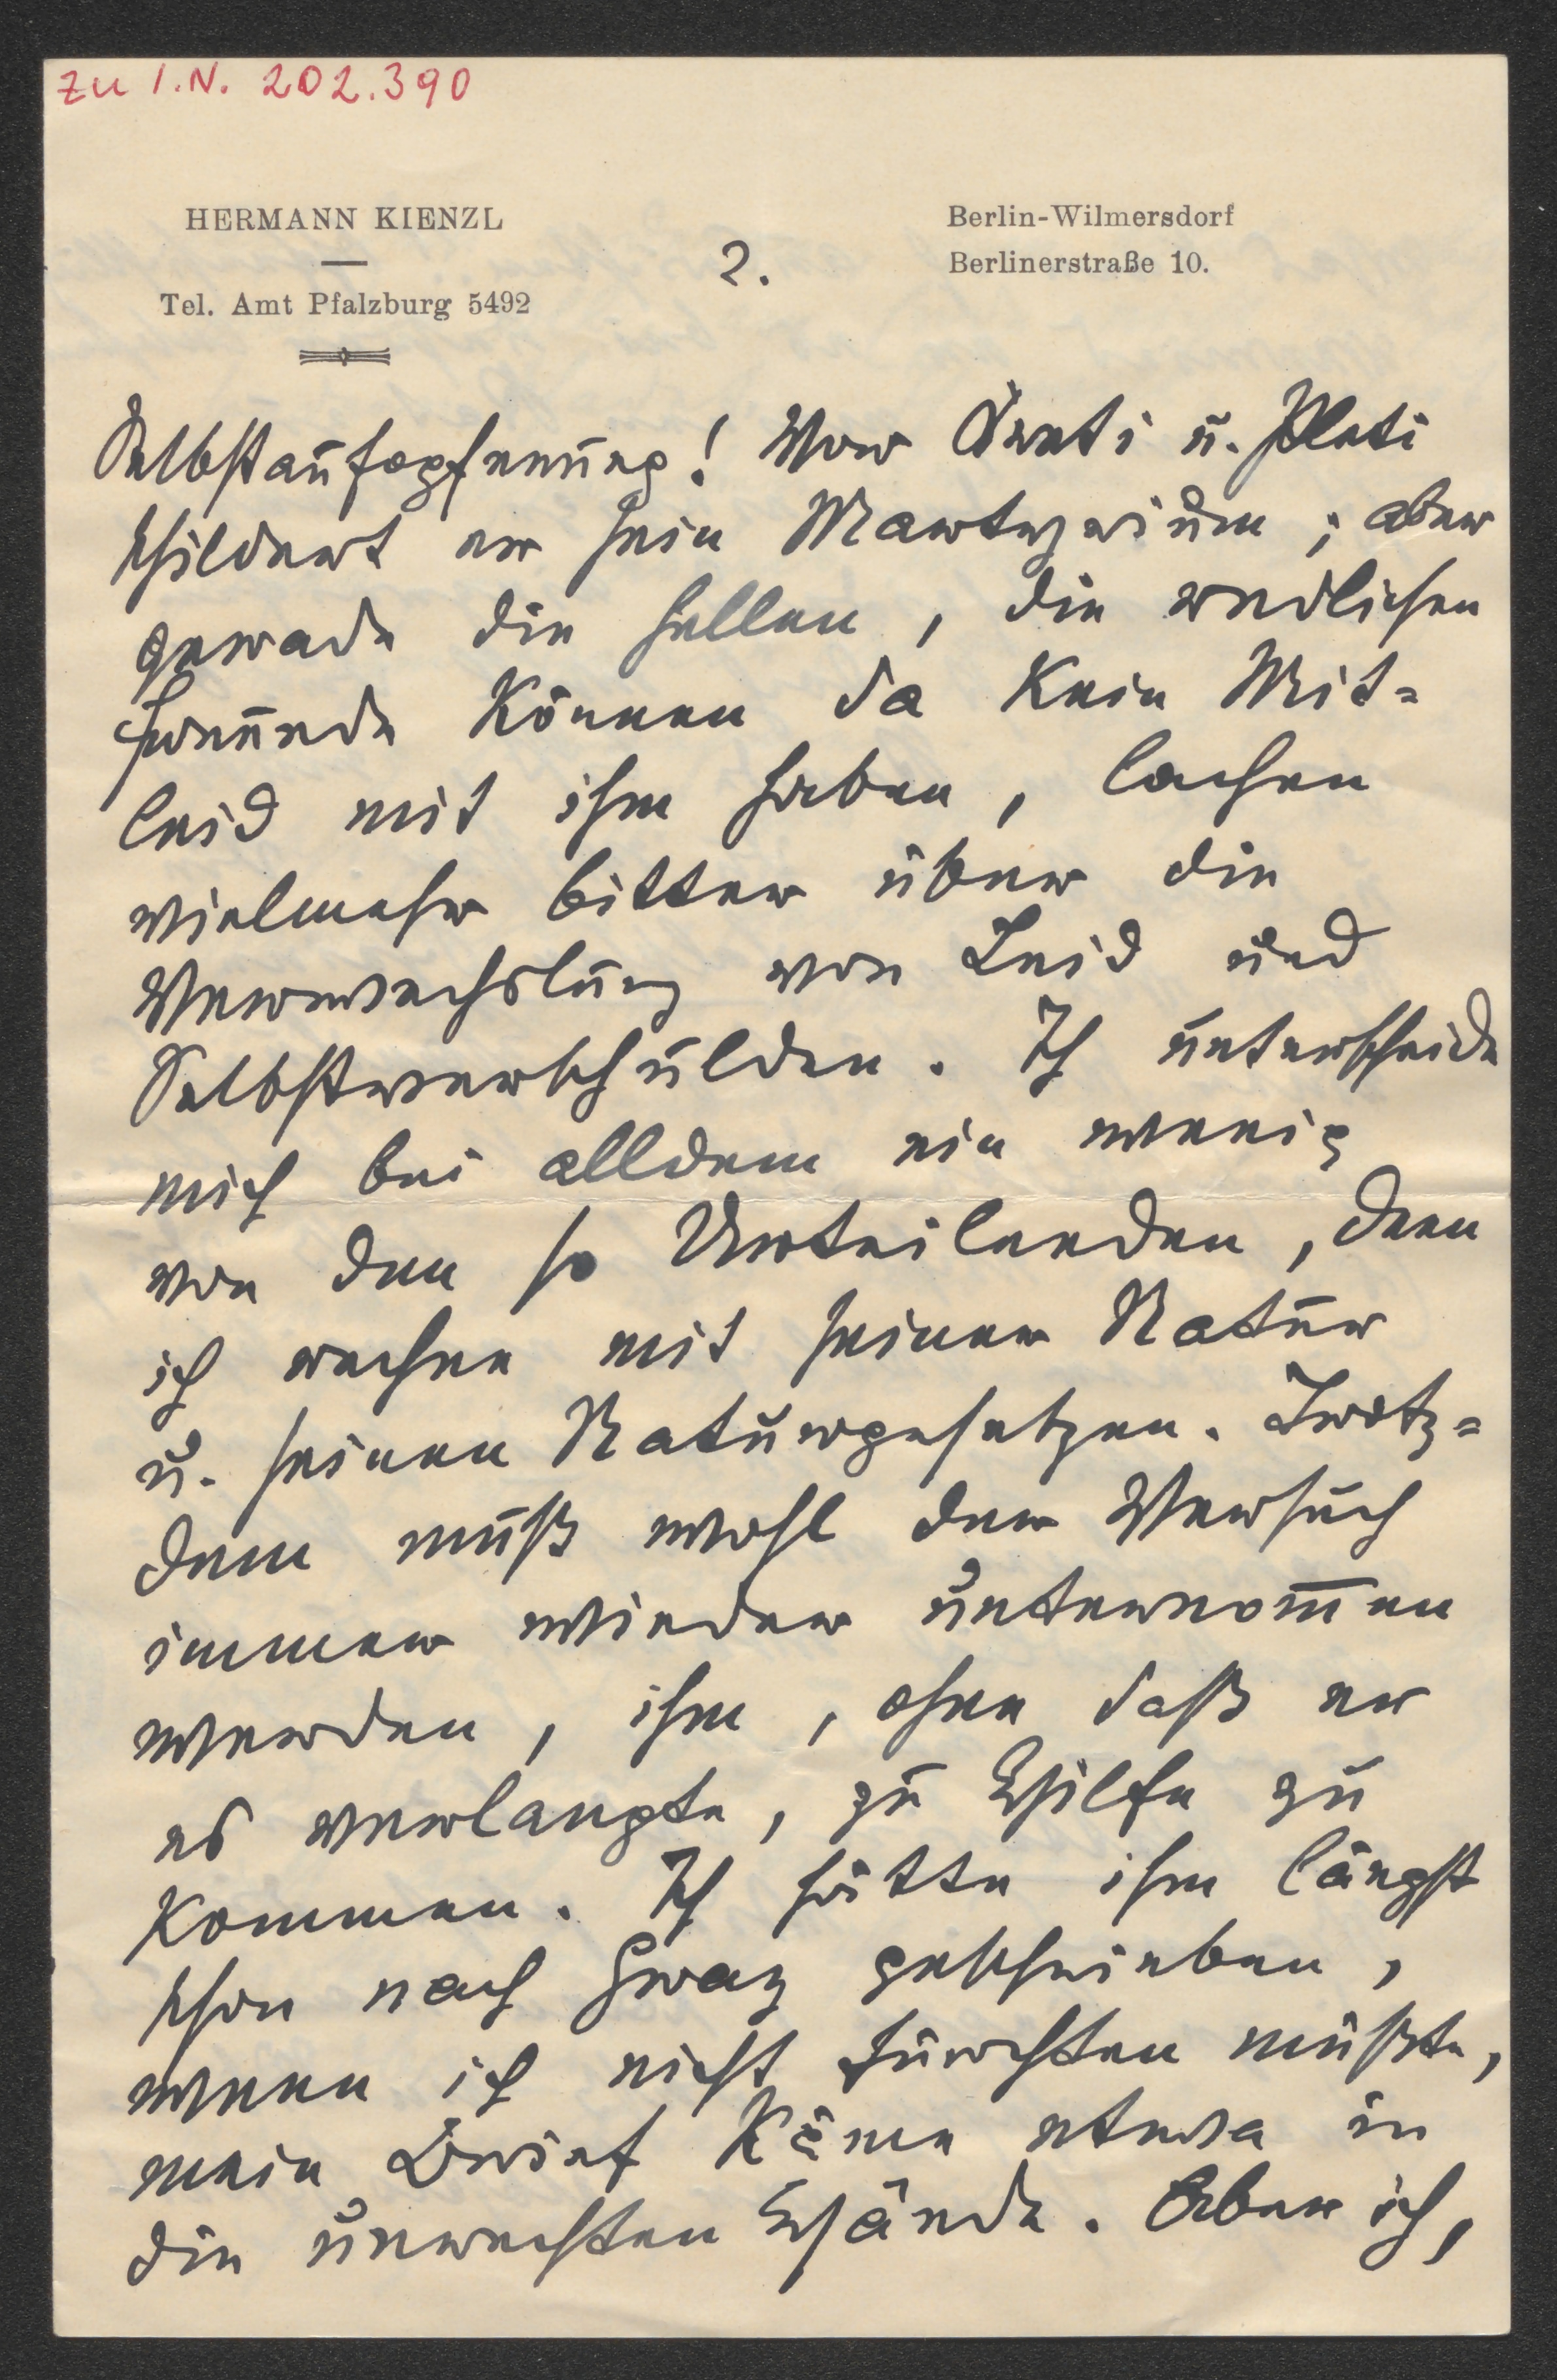 zu I.N. 202.390
HERMANN KIENZL
Tel. Amt Pfalzburg 5492
2.
Berlin-Wilmersdorf
Berlinerstraße 10.
Selbstaufopferung! Vor Krethi u. Plethi
schildert er sein Martyrium; aber
gerade die hellen, die redlichen
Freunde können da kein Mit=
leid mit ihm haben, lachen
vielmehr bitter über die
Verwechslung von Leid und
Selbstverschulden. Ich unterscheide
mich bei alldem ein wenig
von den so Urteilenden, denn
ich rechne mit seiner Natur
u. seinen Naturgesetzen. Trotz=
dem muß wohl der Versuch
immer wieder unternom̅en
werden, ihm, ohne daß er
es verlangte, zu Hilfe zu
kommen. Ich hätte ihm längst
schon nach Graz geschrieben,
wenn ich nicht fürchten müßte,
mein Brief käme etwa in
die unrechten Hände. Aber ich,